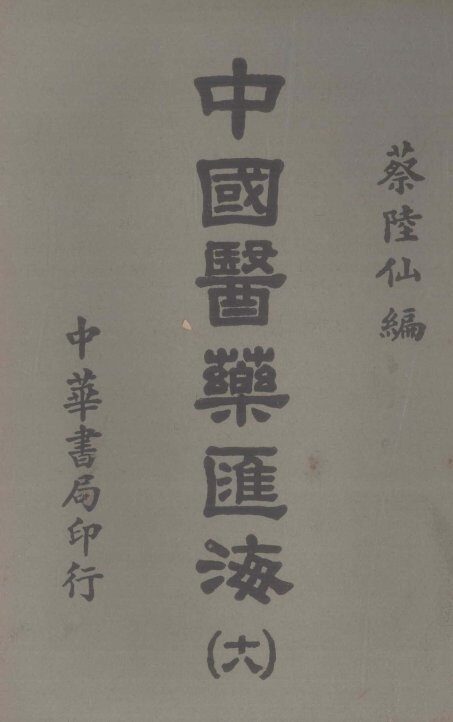 蔡陸仙編
中國醫藥匯海
(十六)
中華書局印行